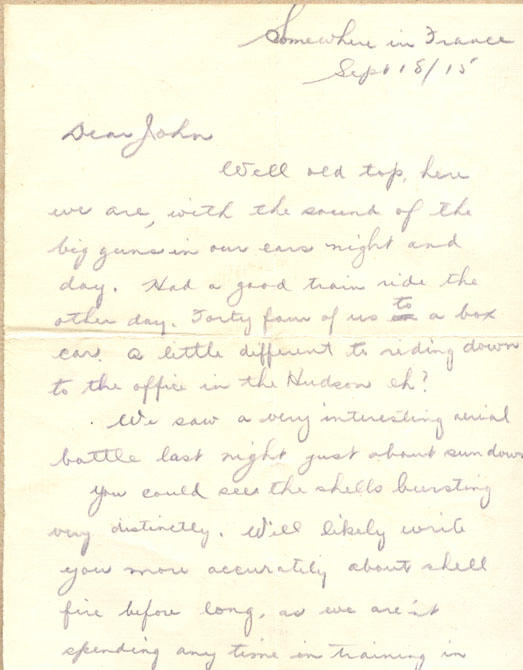 Somewhere in France
Sept 18/15
Dear John
Well old top, here
we are, with the sound of the
big guns in our ears night and
day. Had a good train ride the
other day. Forty four of us to a box
car. a little different to riding down
to the office in the Hudson eh?
We saw a very interesting aerial
battle last night just about sundown
you could see the shells bursting
very distinctly. Will likely write
you more accurately about shell
fire before long, as we are'nt
spending any time in training in